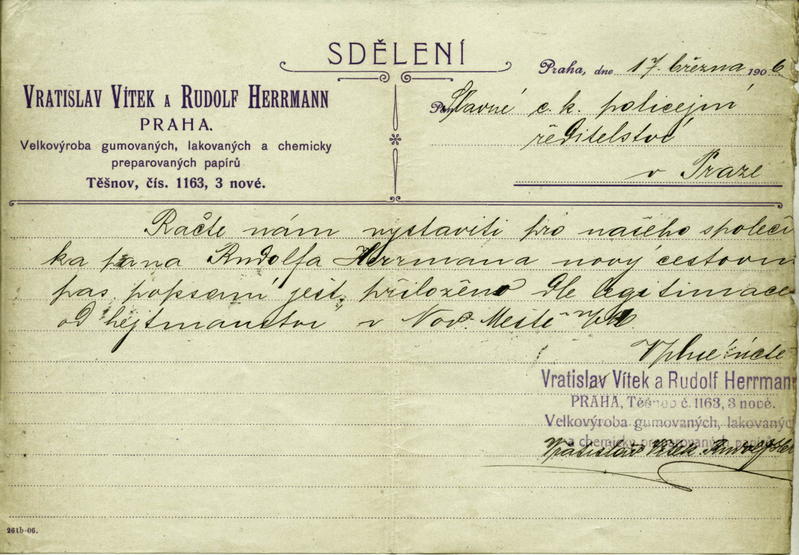 SDĚLENÍ
Praha, dne 17. března 1906
VRATISLAV VÍTEK A RUDOLF HERRMANN
PRAHA.
Velkovýroba gumovaných, lakovaných a chemicky
preparovaných papírů
Těšnov, čís. 1163, 3 nové.
Slavné c. k. policejní
ředitelství
v Praze
Račte nám vystaviti pro našeho společí
ka pana Rudolfa Herrmana nový cestovn
pas popsaní jest přiloženo dle legitimace
od hejtmanství v Nov. Městě n/M
V plné úctě
Vratislav Vítek a Rudolf Herrmann
PRAHA, Těšnov č. 1163, 3 nové.
Velkovýroba gumovaných, lakovaných
a chemicky preparovaných papírů
Vratislav Vítek Rudolf Her
261b-06.